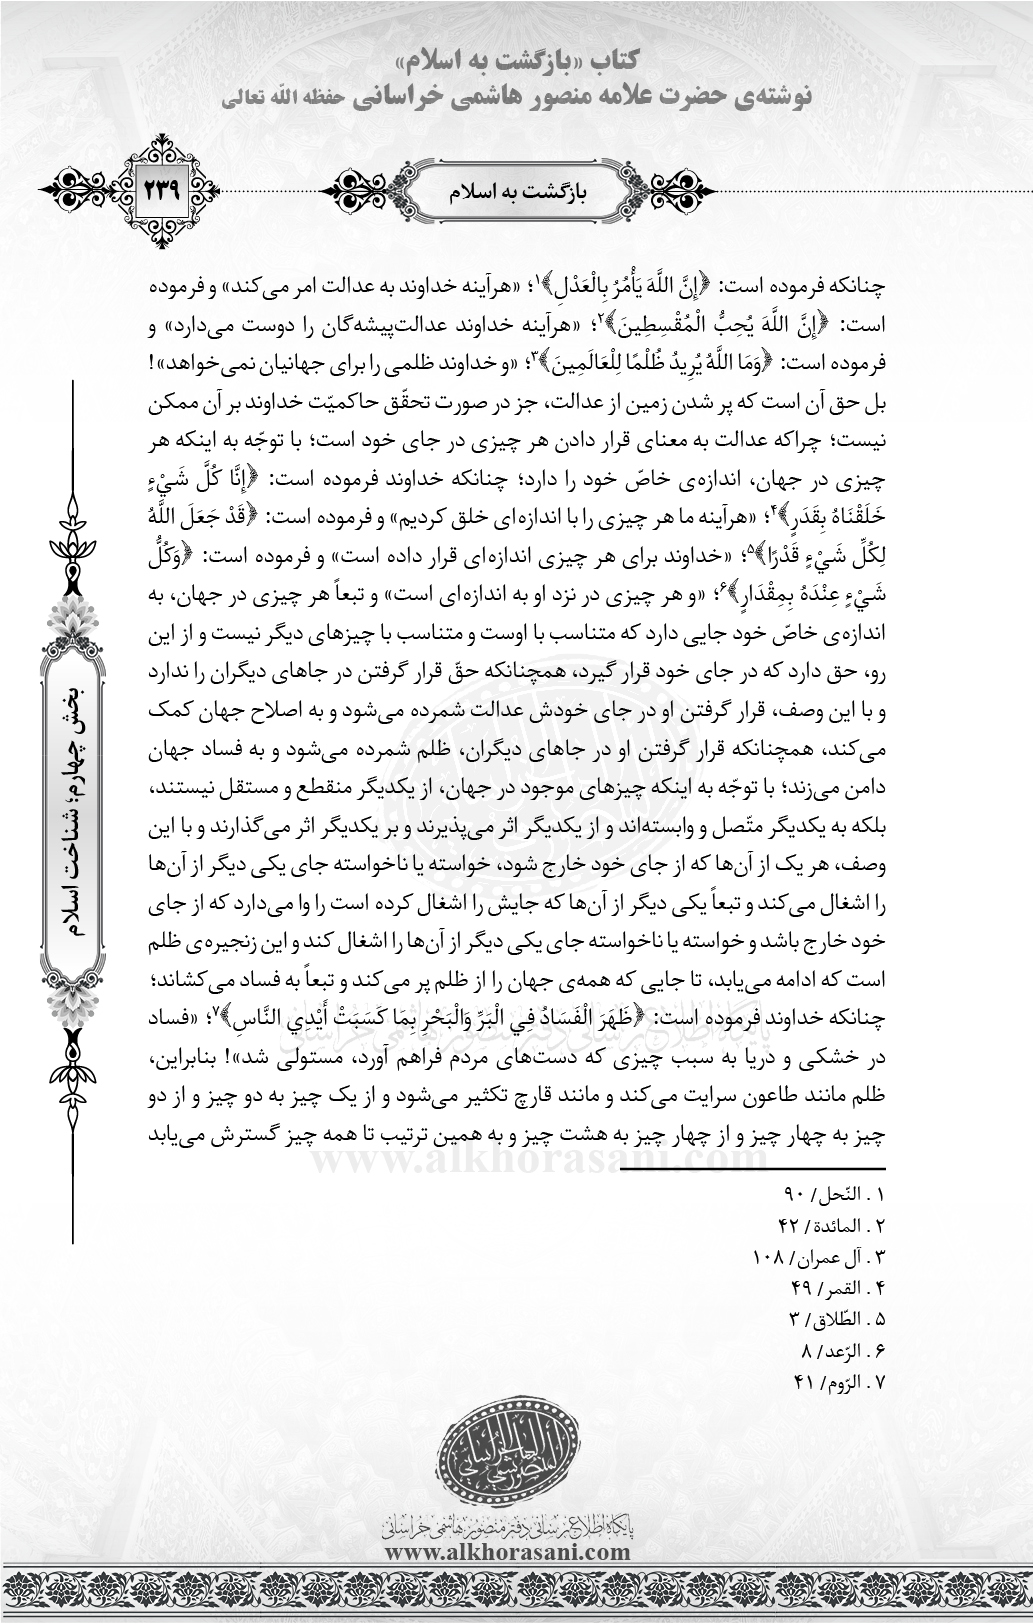 کتاب «بازگشت به اسلام»
نوشته‌ی حضرت علامه منصور هاشمی خراسانی حفظه الله تعالی
بازگشت به اسلام
۲۳۹
چنانکه فرموده است: ﴿إِنَّ اللَّهَ يَأْمُرُ بِالْعَدْلِ﴾۱؛ «هرآینه خداوند به عدالت امر می‌کند» و فرموده
است: ﴿إِنَّ اللَّهَ يُحِبُّ الْمُقْسِطِينَ﴾۲؛ «هرآینه خداوند عدالت‌پیشه‌گان را دوست می‌دارد» و
فرموده است: ﴿وَمَا اللَّهُ يُرِيدُ ظُلْمًا لِلْعَالَمِينَ﴾۳؛ «و خداوند ظلمی را برای جهانیان نمی‌خواهد»!
بل حق آن است که پر شدن زمین از عدالت، جز در صورت تحقّق حاکمیّت خداوند بر آن ممکن
نیست؛ چراکه عدالت به معنای قرار دادن هر چیزی در جای خود است؛ با توجّه به اینکه هر
چیزی در جهان، اندازه‌ی خاصّ خود را دارد؛ چنانکه خداوند فرموده است: ﴿إِنَّا كُلَّ شَيْءٍ
خَلَقْنَاهُ بِقَدَرٍ﴾۴؛ «هرآینه ما هر چیزی را با اندازه‌ای خلق کردیم» و فرموده است: ﴿قَدْ جَعَلَ اللَّهُ
لِكُلِّ شَيْءٍ قَدْرًا﴾۵؛ «خداوند برای هر چیزی اندازه‌ای قرار داده است» و فرموده است: ﴿وَكُلُّ
شَيْءٍ عِنْدَهُ بِمِقْدَارٍ﴾۶؛ «و هر چیزی در نزد او به اندازه‌ای است» و تبعاً هر چیزی در جهان، به
اندازه‌ی خاصّ خود جایی دارد که متناسب با اوست و متناسب با چیزهای دیگر نیست و از این
رو، حق دارد که در جای خود قرار گیرد، همچنانکه حقّ قرار گرفتن در جاهای دیگران را ندارد
و با این وصف، قرار گرفتن او در جای خودش عدالت شمرده می‌شود و به اصلاح جهان کمک
می‌کند، همچنانکه قرار گرفتن او در جاهای دیگران، ظلم شمرده می‌شود و به فساد جهان
دامن می‌زند؛ با توجّه به اینکه چیزهای موجود در جهان، از یکدیگر منقطع و مستقل نیستند،
بلکه به یکدیگر متّصل و وابسته‌اند و از یکدیگر اثر می‌پذیرند و بر یکدیگر اثر می‌گذارند و با این
وصف، هر یک از آن‌ها که از جای خود خارج شود، خواسته یا ناخواسته جای یکی دیگر از آن‌ها
را اشغال می‌کند و تبعاً یکی دیگر از آن‌ها که جایش را اشغال کرده است را وا می‌دارد که از جای
خود خارج باشد و خواسته یا ناخواسته جای یکی دیگر از آن‌ها را اشغال کند و این زنجیره‌ی ظلم
است که ادامه می‌یابد، تا جایی که همه‌ی جهان را از ظلم پر می‌کند و تبعاً به فساد می‌کشاند؛
چنانکه خداوند فرموده است: ﴿ظَهَرَ الْفَسَادُ فِي الْبَرِّ وَالْبَحْرِ بِمَا كَسَبَتْ أَيْدِي النَّاسِ﴾۷؛ «فساد
در خشکی و دریا به سبب چیزی که دست‌های مردم فراهم آورد، مستولی شد»! بنابراین،
ظلم مانند طاعون سرایت می‌کند و مانند قارچ تکثیر می‌شود و از یک چیز به دو چیز و از دو
چیز به چهار چیز و از چهار چیز به هشت چیز و به همین ترتیب تا همه چیز گسترش می‌یابد
۱ . النّحل/ ۹۰
۲ . المائدة/ ۴۲
۳ . آل عمران/ ۱۰۸
۴ . القمر/ ۴۹
۵ . الطّلاق/ ۳
۶ . الرّعد/ ۸
۷ . الرّوم/ ۴۱
بخش چهارم؛ شناخت اسلام
پایگاه اطلاع‌رسانی دفتر منصور هاشمی خراسانی
www.alkhorasani.com
پایگاه اطلاع‌رسانی دفتر منصور هاشمی خراسانی
www.alkhorasani.com